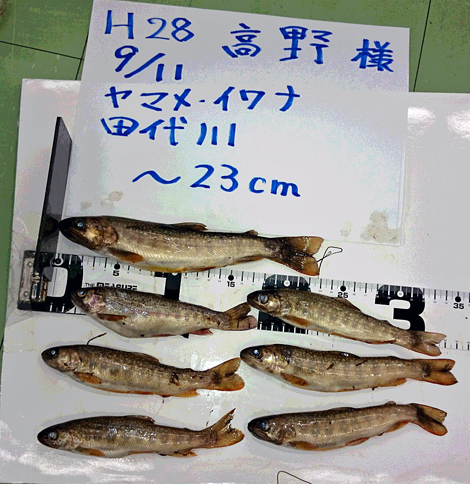 H28 高野 様
9/11
ヤマメ・イワナ
田代川
～23cm
0 5 1 15 25 3 35
THE MEASURE